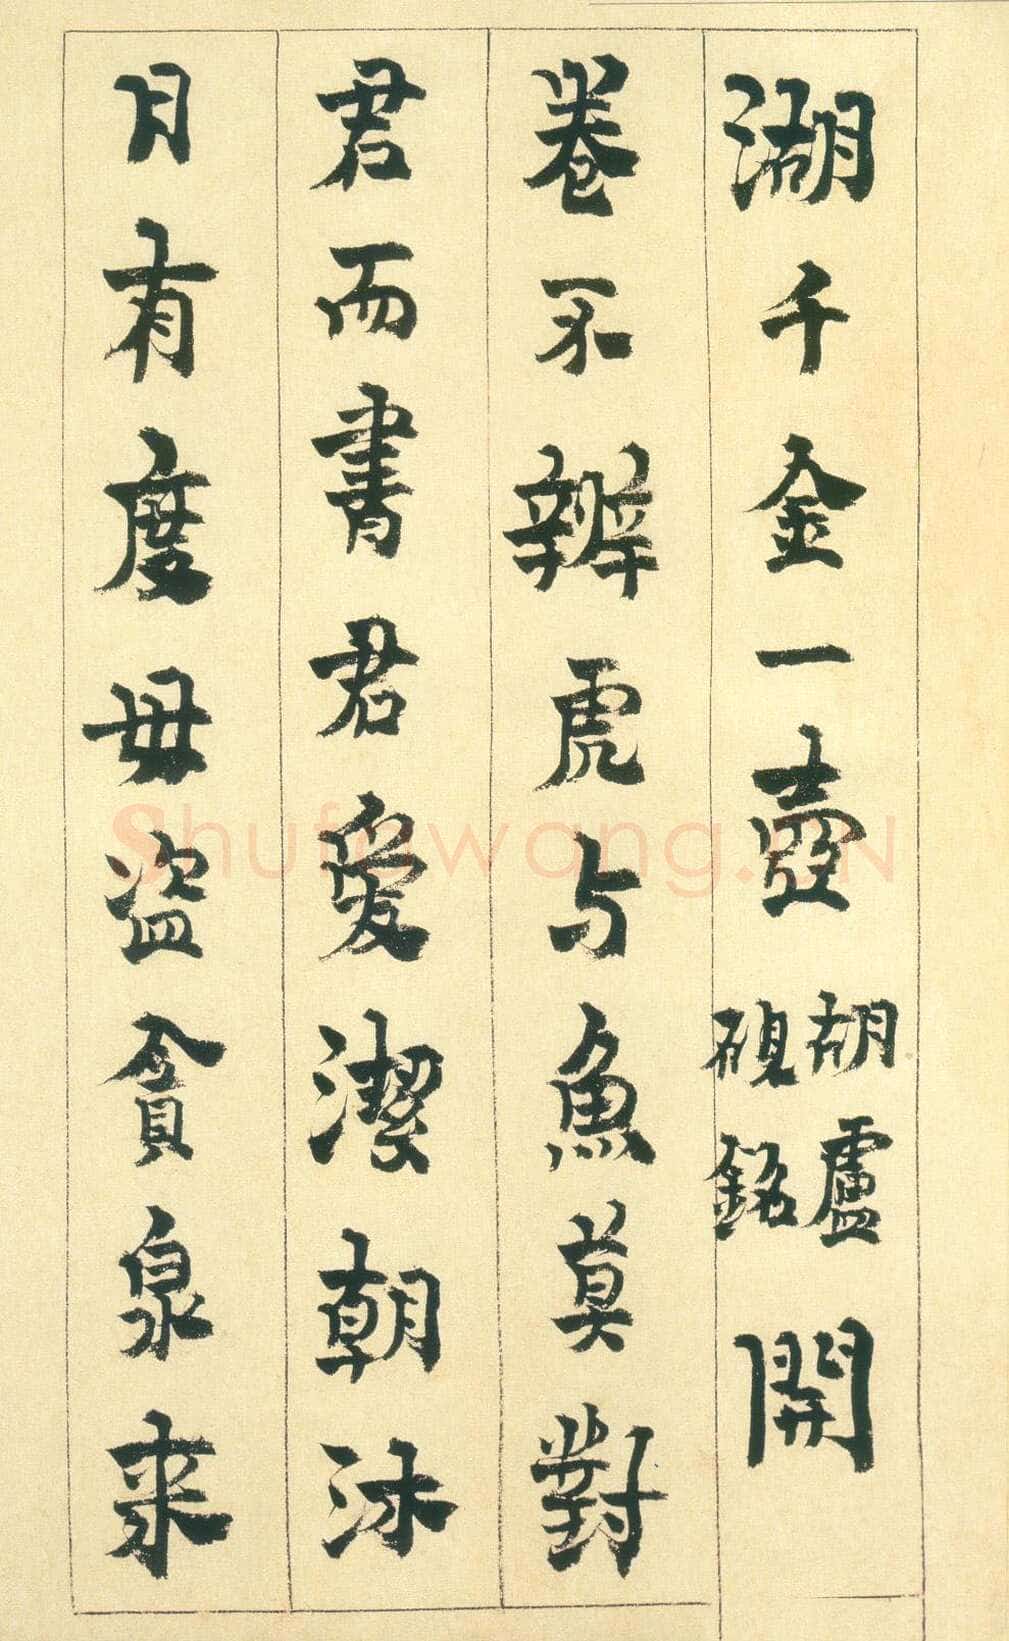 湖千金一壺
胡盧
硯銘
開
卷不辨虎与魚莫對
君而書君愛潔朝沐
月有度毋盗貪泉來
Shufawang.CN